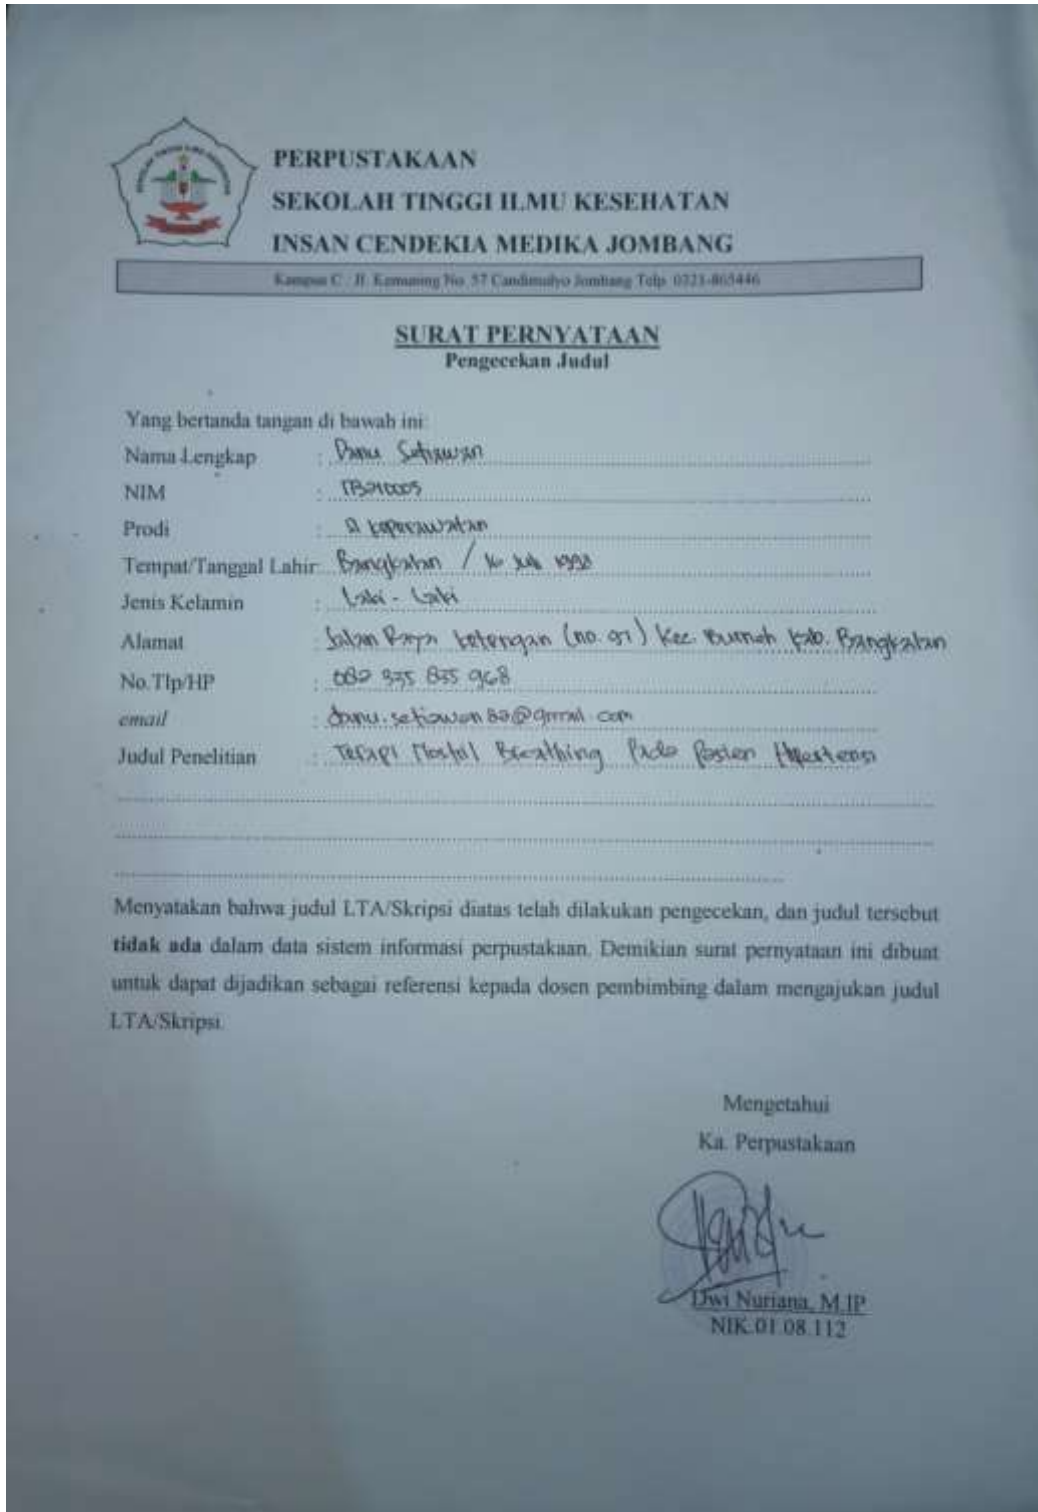 PERPUSTAKAAN
SEKOLAH TINGGI ILMU KESEHATAN
INSAN CENDEKIA MEDIKA JOMBANG
Kampus C : Jl. Kemuning No. 57 Candimulyo Jombang Telp. 0321-865446
SURAT PERNYATAAN
Pengecekan Judul
Yang bertanda tangan di bawah ini:
Nama Lengkap : Danu Setiawan
NIM :
Prodi : Keperawatan
Tempat/Tanggal Lahir: Bangkalan / 16 Juli
Jenis Kelamin : Laki - Laki
Alamat : Jalan Raya Ketengan Kec. Burneh Kab. Bangkalan
No.Tlp/HP : 835 968
email : danu.setiawan82@gmail.com
Judul Penelitian : Terapi Nostril Breathing Pada Pasien
Menyatakan bahwa judul LTA/Skripsi diatas telah dilakukan pengecekan, dan judul tersebut
tidak ada dalam data sistem informasi perpustakaan. Demikian surat pernyataan ini dibuat
untuk dapat dijadikan sebagai referensi kepada dosen pembimbing dalam mengajukan judul
LTA/Skripsi.
Mengetahui
Ka. Perpustakaan
Dwi Nuriana, M.IP
NIK.01.08.112